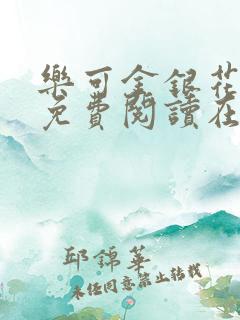 樂可金銀花
免費閱讀在
邱錦華
未經同意禁止轉載